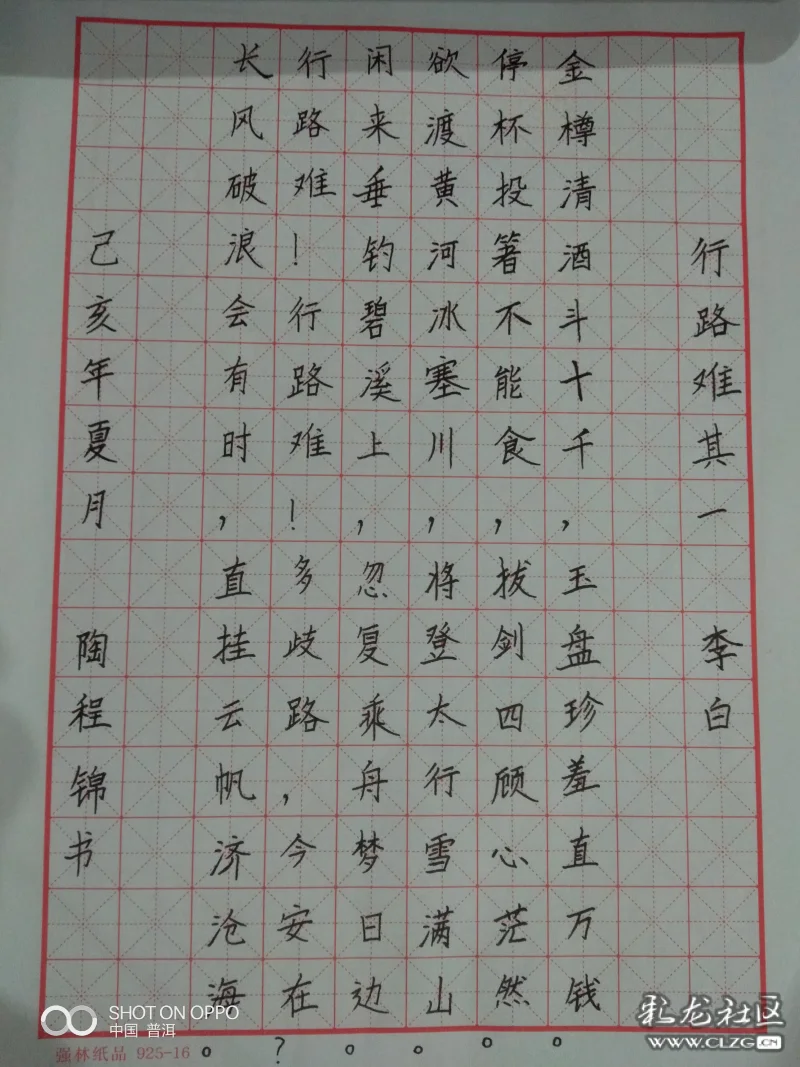 行路难其一 李白
金樽清酒斗十千，玉盘珍羞直万钱。
停杯投箸不能食，拔剑四顾心茫然。
欲渡黄河冰塞川，将登太行雪满山。
闲来垂钓碧溪上，忽复乘舟梦日边。
行路难！行路难！多歧路，今安在？
长风破浪会有时，直挂云帆济沧海。
己亥年夏月 陶程锦书
SHOT ON OPPO
中国 普洱
强林纸品 925-16
彩龙社区
WWW.CLZG.CN